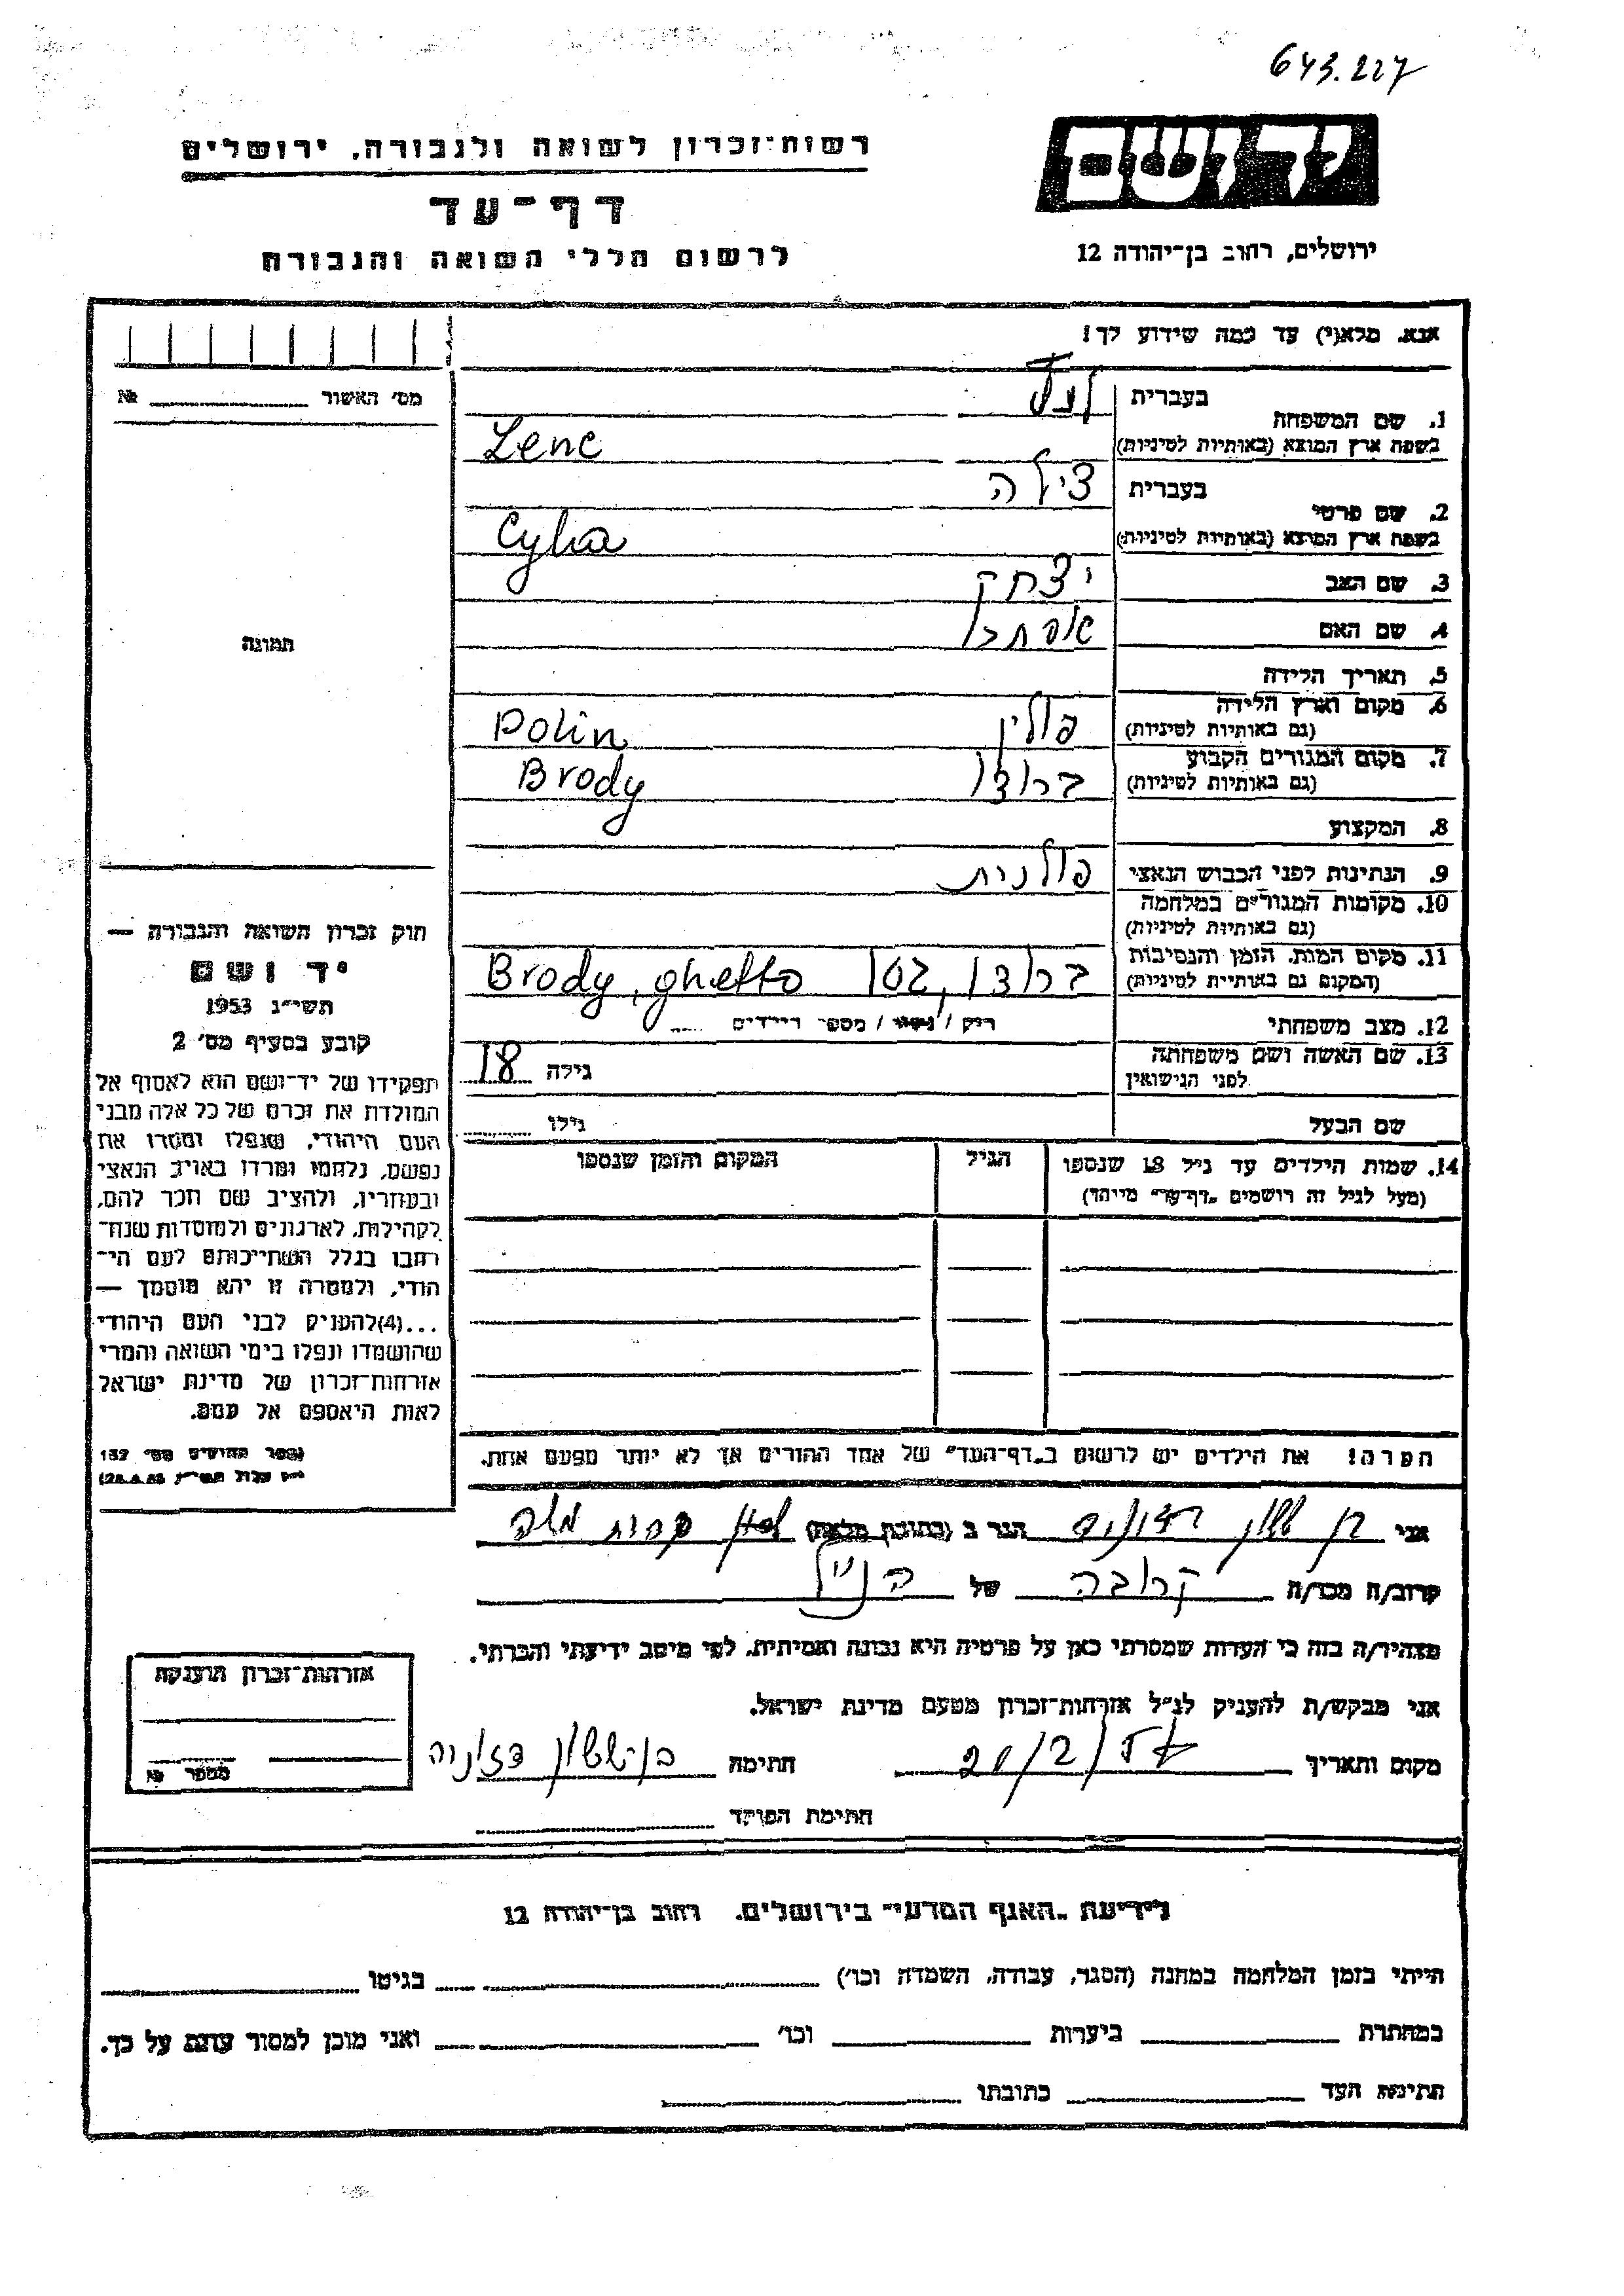 643.227
יד ושם
רשות־זכרון לשואה ולגבורה, ירושלים
דף־עד
לרשום חללי השואה והגבורה
ירושלים, רחוב בן־יהודה 12
אנא, מלא(י) עד כמה שידוע לך!
מס' האשור № 
1. שם המשפחה
בעברית
בשפת ארץ המוצא (באותיות לטיניות) Lenc
2. שם פרטי
בעברית צילה
בשפת ארץ המוצא (באותיות לטיניות) Cyla
3. שם האב יצחק
4. שם האם
5. תאריך הלידה
6. מקום וארץ הלידה פולין Polin
(גם באותיות לטיניות)
7. מקום המגורים הקבוע ברודי Brody
(גם באותיות לטיניות)
8. המקצוע
9. הנתינות לפני הכבוש הנאצי פולנית
10. מקומות המגורים במלחמה
(גם באותיות לטיניות)
11. מקום המות, הזמן והנסיבות ברודי, גטו Brody, ghetto
(המקום גם באותיות לטיניות)
12. מצב משפחתי רווק / נשוי / מספר הילדים
13. שם האשה ושם משפחתה
לפני הנישואין גילה 18
שם הבעל גילו
14. שמות הילדים עד גיל 18 שנספו הגיל המקום והזמן שנספו
(מעל לגיל זה רושמים "דף־עד" מיוחד)
הערה! את הילדים יש לרשום ב"דף־העד" של אחד ההורים אך לא יותר מפעם אחת.
תמונה
חוק זכרון השואה והגבורה —
יד ושם
תשי"ג 1953
קובע בסעיף מס' 2
תפקידו של יד־ושם הוא לאסוף אל
המולדת את זכרם של כל אלה מבני
העם היהודי, שנפלו ומסרו את
נפשם, נלחמו ומרדו באויב הנאצי
ובעוזריו, ולהציב שם וזכר להם,
לקהילות, לארגונים ולמוסדות שנח־
רבו בגלל השתייכותם לעם הי־
הודי, ולמטרה זו יהא מוסמך —
...(4) להעניק לבני העם היהודי
שהושמדו ונפלו בימי השואה והמרי
אזרחות־זכרון של מדינת ישראל
לאות היאספם אל עמם.
(ספר החוקים מס' 132
אני בן ששון הגר ב (כתובת מלאה)
קרוב/ה מכר/ה קרובה של הנ"ל
מצהיר/ה בזה כי העדות שמסרתי כאן על פרטיה היא נכונה ואמיתית, לפי מיטב ידיעתי והכרתי.
אני מבקש/ת להעניק לנ"ל אזרחות־זכרון מטעם מדינת ישראל.
מקום ותאריך חתימה בן־ששון
חתימת הפוקד
אזרחות־זכרון הוענקה
מספר №
לידיעת "האגף המדעי" בירושלים, רחוב בן־יהודה 12
הייתי בזמן המלחמה במחנה (הסגר, עבודה, השמדה וכו') בגיטו
במחתרת ביערות וכו' ואני מוכן למסור עדות על כך.
חתימת העד כתובתו